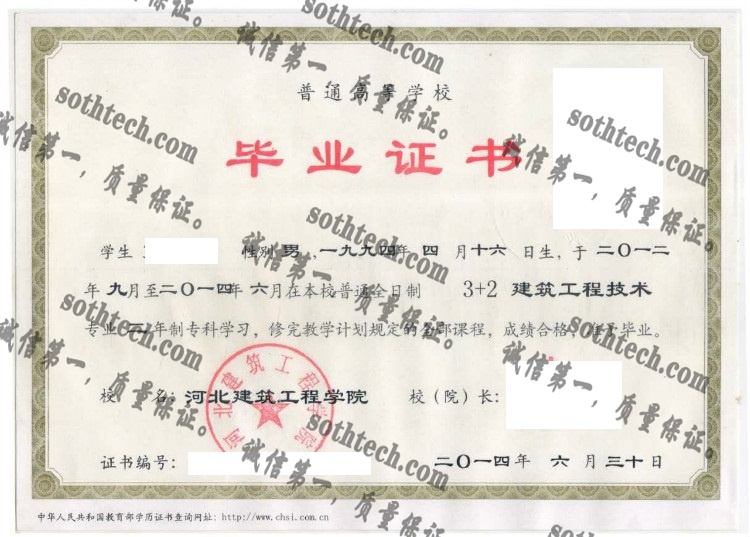 普通高等学校
毕业证书
学生 性别 男 ,一九九四年 四 月十六 日生，于 二〇一二
年 九月至二〇一四年 六月在本校普通全日制 3+2 建筑工程技术
专业 二年制专科学习，修完教学计划规定的全部课程，成绩合格，准予毕业。
校 名：河北建筑工程学院 校（院）长：
证书编号： 二〇一四年 六 月 三十日
中华人民共和国教育部学历证书查询网址：http://www.chsi.com.cn
河北建筑工程学院
sothtech.com
诚信第一，质量保证。
sothtech.com
诚信第一，质量保证。
sothtech.com
诚信第一，质量保证。
sothtech.com
诚信第一，质量保证。
sothtech.com
诚信第一，质量保证。
sothtech.com
诚信第一，质量保证。
sothtech.com
诚信第一，质量保证。